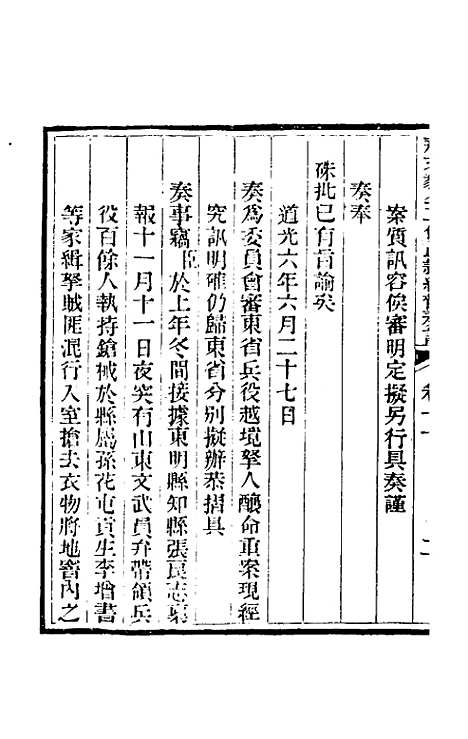 案質訊容俟審明定擬另行具奏謹
奏奉
硃批已有旨諭矣
道光六年六月二十七日
奏爲委員會審東省兵役越境拏人釀命重案現經
究訊明確仍歸東省分別擬辦恭摺具
奏事竊臣於上年冬間接據東明縣知縣張良志稟
報十一月十一日夜突有山東文武員弁帶領兵
役百餘人執持鎗械於縣屬孫花屯貢生李增書
等家緝拏賊匪混行入室搶去衣物將地窖內之